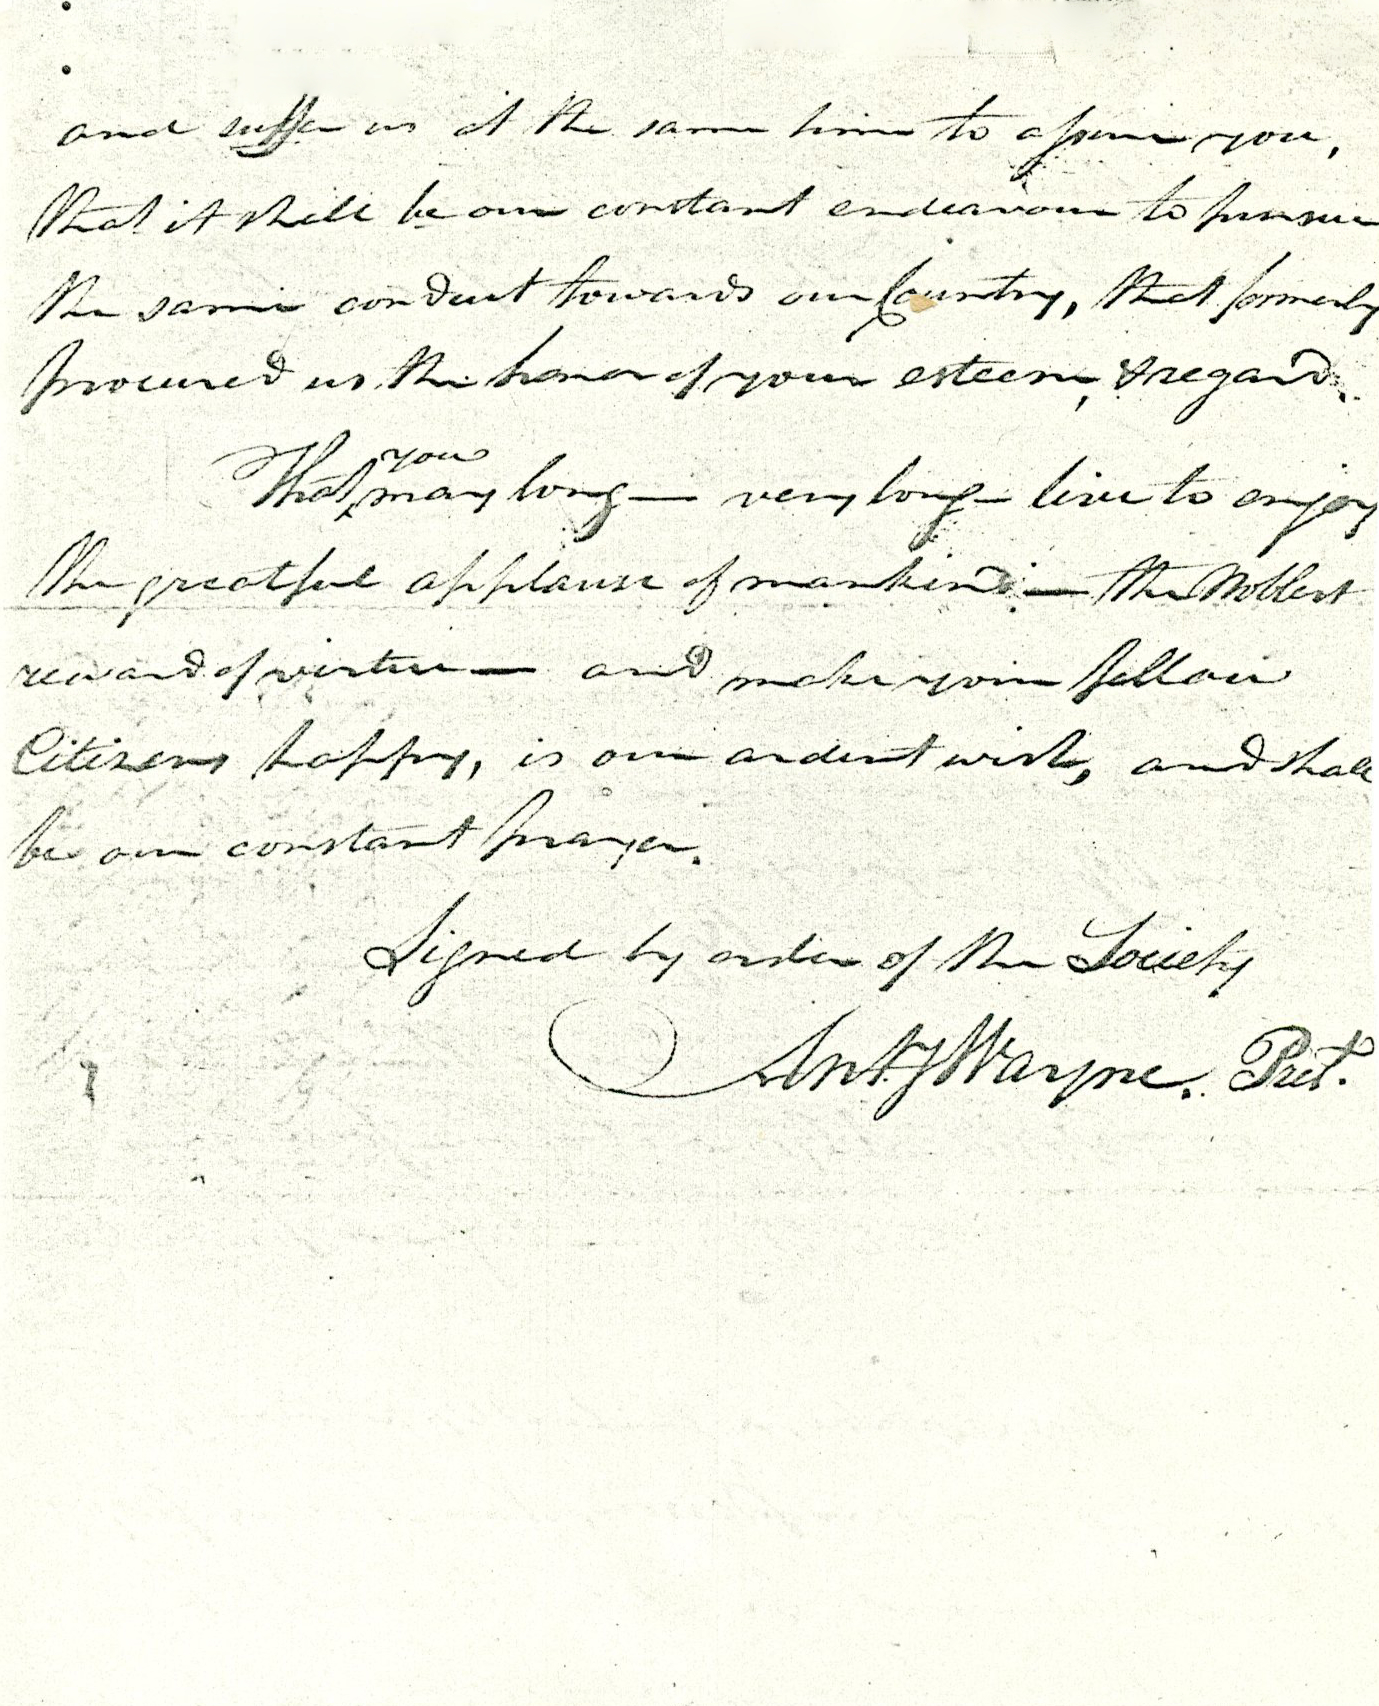 and suffer us at the same time to assure you,
that it shall be our constant endeavour to pursue
the same conduct towards our Country, that formerly
procured us the honor of your esteem, & regard.
you
That may long — very long — live to enjoy
the greatful applause of mankind — the Noblest
reward of virtue — and make your fellow
Citizens happy, is our ardent wish, and shall
be our constant prayer.
Signed by order of the Society
Anty Wayne. Pret.